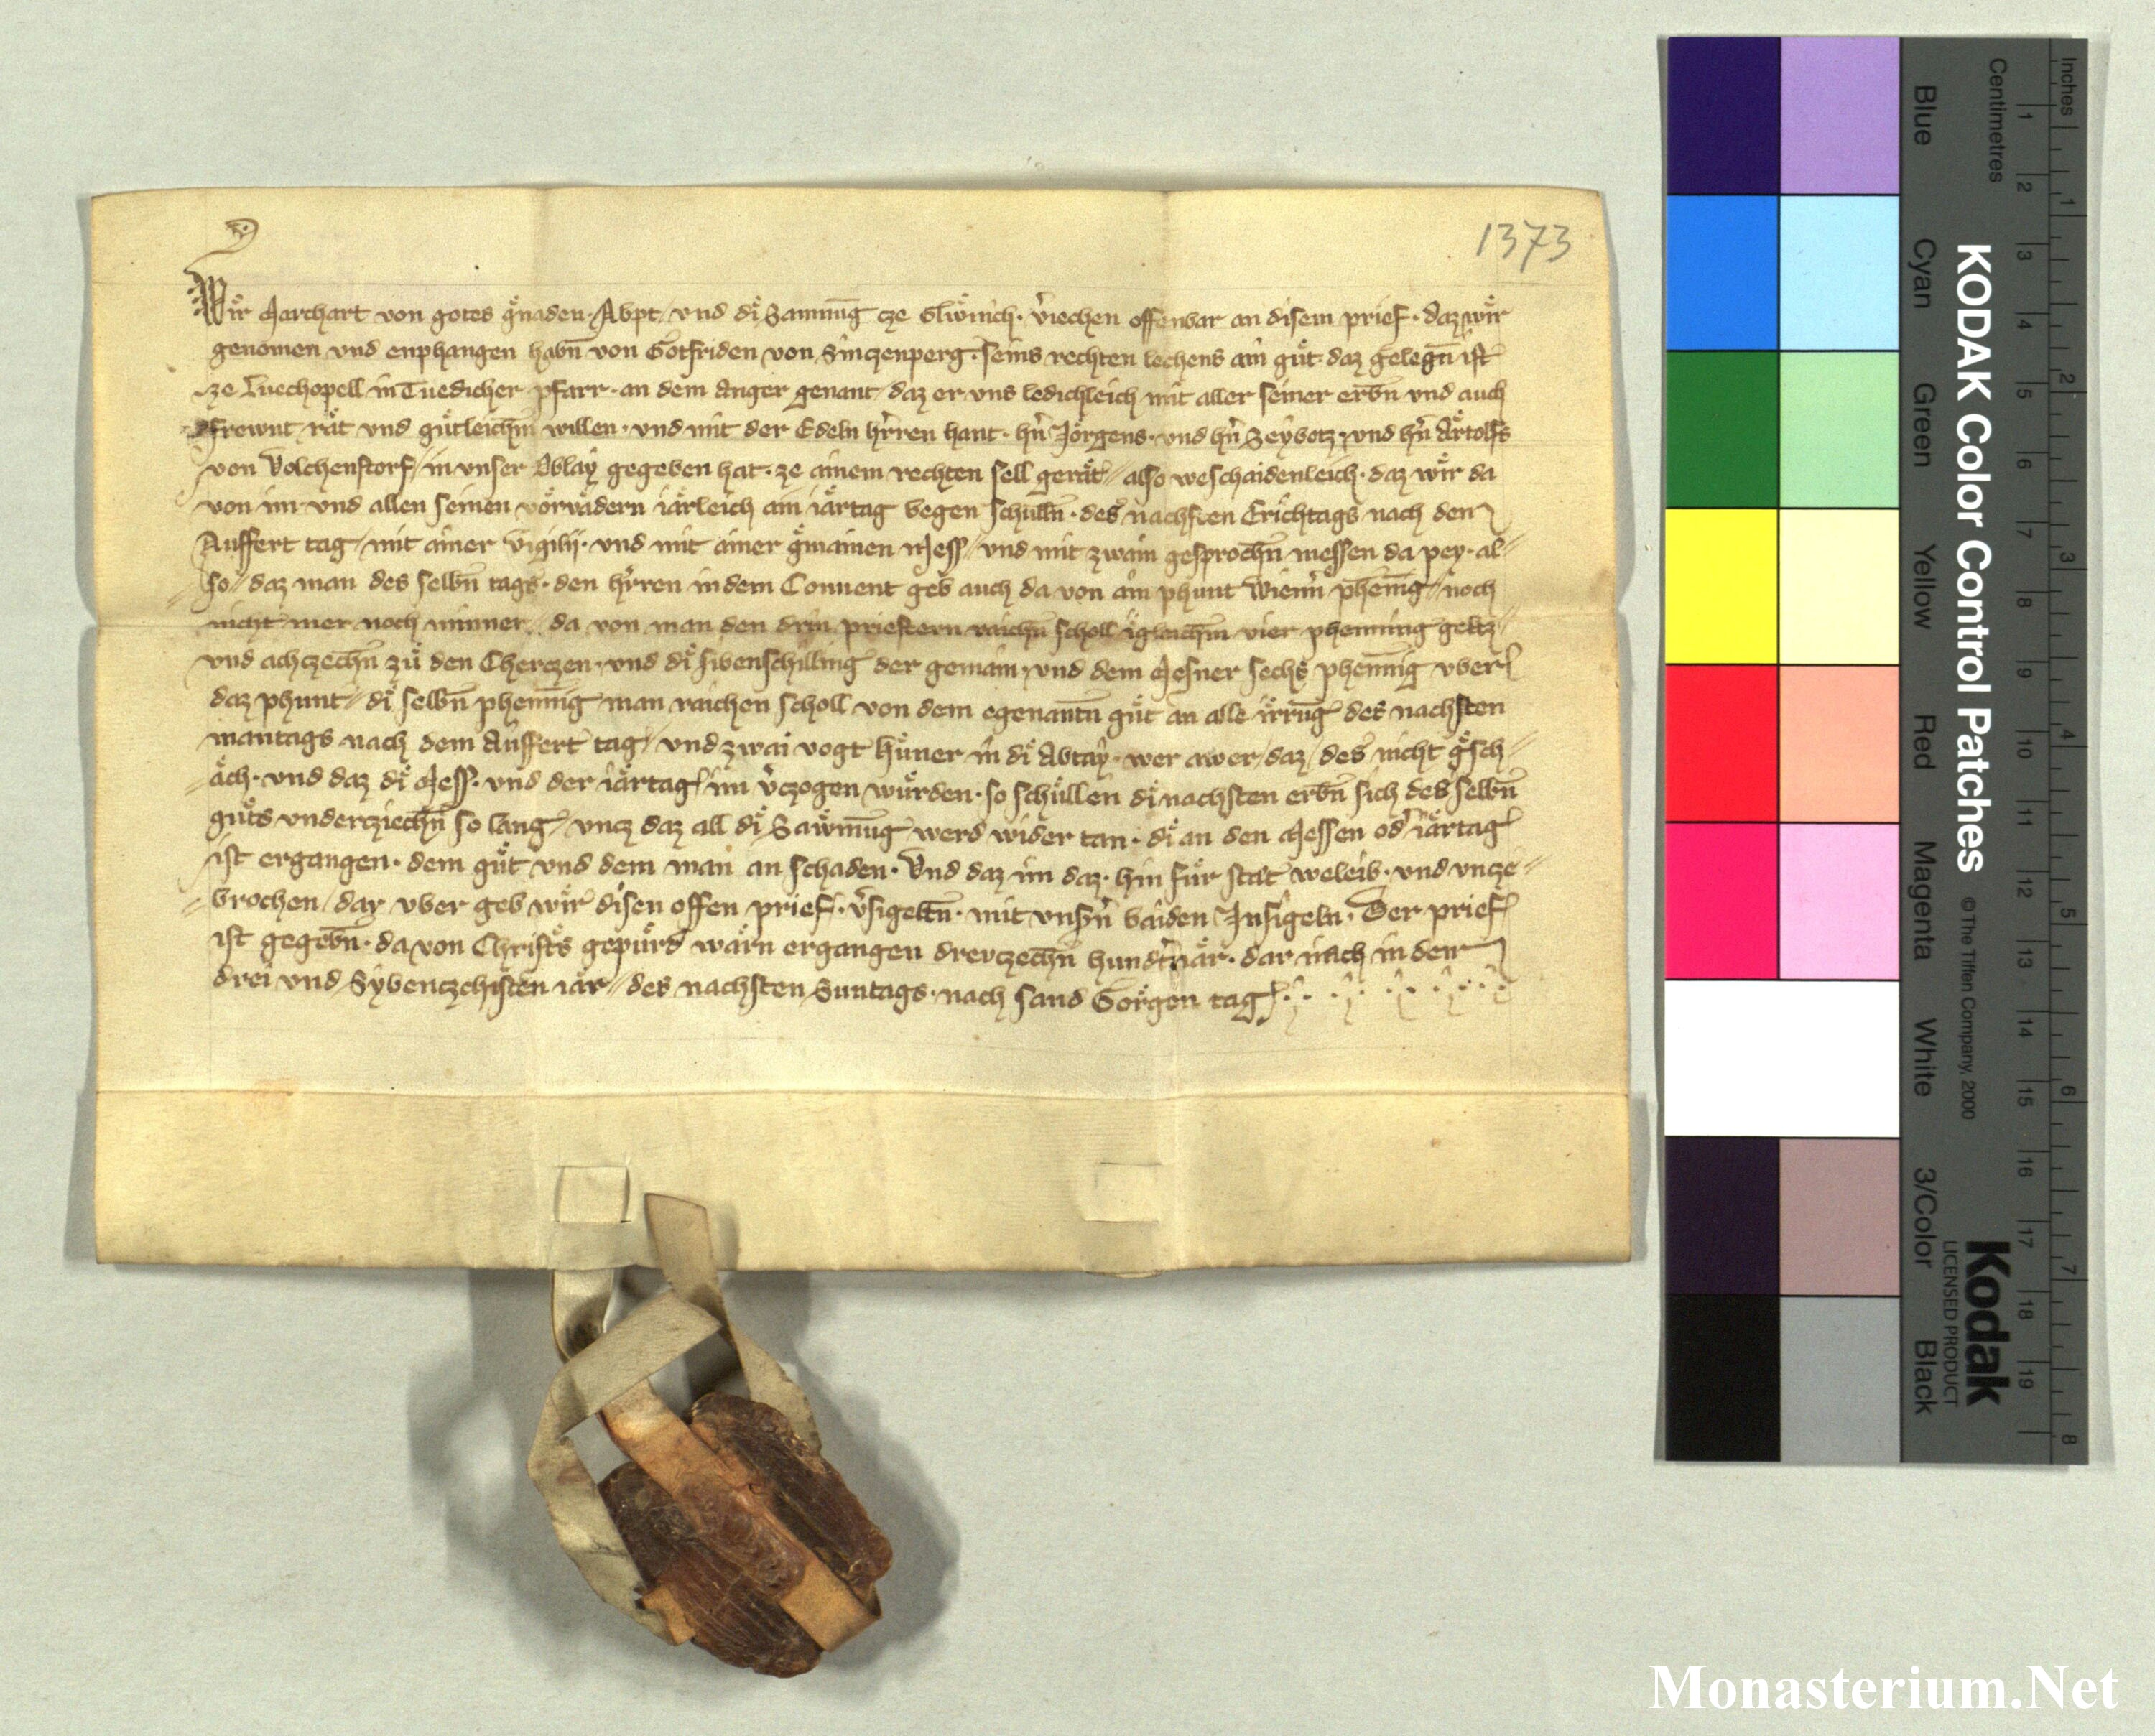 1373
Wir Marchart von gotes gnaden Abpt, vnd di Samnūg cze Glewnich · v̄iechen offenbar an disem prief · daz wir
genomen vnd enphangen habn̄ von Gotfriden von Sinczenperg · seins rechten lechens ain gůt · daz gelegn̄ ist
ze Tuechopell in Tuedicher pfarr · an dem Anger genant / daz er vns ledichleich mit aller seiner erbn̄ vnd auch
frewnt rät vnd gůtleichm̄ willen · vnd mit der Edeln hr̄ren hant · hn̄ Jörgens · vnd hn̄ Seybotz · vnd hn̄ Artolfs
von Volchenstorf / in vnser Oblay gegeben hat · ze ainem rechten sell gerät // also weschaidenleich · daz wir da
von im vnd allen seinen vörvadern iärleich ain iärtag begen schulln̄ · des nachsten Erichtags nach dem
Auffert tag / mit ainer vigilij · vnd mit ainer gmainen Mess / vnd mit zwain gesprochn̄ messen da pey · al//
so // daz man des selbn̄ tags · den hr̄ren in dem Conuent geb auch da von ain phunt wienn̄ phenīg // noch
nicht mer noch minner // da von man den drin priestern raichn̄ scholl igleichm̄ vier phenning geltz //
vnd achczechn̄ zů den Cherczen · vnd di sibenschilling der gemain · vnd dem Mesner sechs phennīg vber
daz phunt // di selbn̄ phennīg man raichen scholl von dem egenantn̄ gůt an alle irrūg des nachsten
mantags nach dem Auffert tag / vnd zwai vogt hůner in di Abtay · wer awer / daz / des nicht gsch//
äch · vnd daz di Mess · vnd der iärtag im v̄czogen wůrden · so schüllen di nachsten erbn̄ sich des selbn̄
gůts vnderziechn̄ so lang / vncz daz all di Sawmūg werd wider tan · di an den Messen od̄ iärtag
ist ergangen · dem gůt vnd dem man an schaden · Vnd daz im daz · hin für stät weleib · vnd vncze//
brochen / dar vber geb wir disen offen prief · v̄sigeltn̄ · mit vnsn̄ baiden Insigeln · Der prief
ist gegebn̄ · da von Christs gepürd warn ergangen drevczechn̄ hundt̄ iär · dar nach in dem
drei vnd Sybenczchisten iär // des nachsten Suntags · nach sand Görgen tag
KODAK Color Control Patches © The Tiffen Company, 2000
Kodak
LICENSED PRODUCT
Inches
Centimetres
1 2 3 4 5 6 7 8 9 10 11 12 13 14 15 16 17 18 19
1 2 3 4 5 6 7 8
Blue Cyan Green Yellow Red Magenta White 3/Color Black
Monasterium.Net